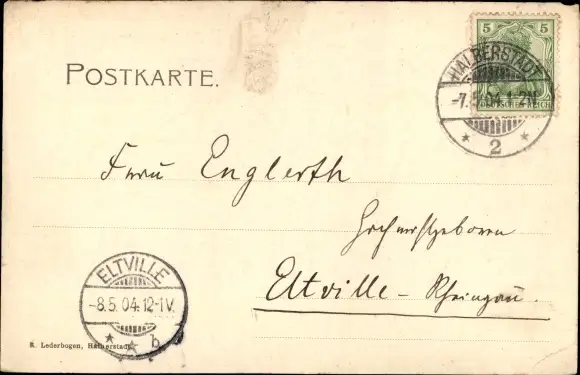 POSTKARTE.
5 5
DEUTSCHES REICH
HALBERSTADT
-7.5.04.1-2N.
* 2 *
Frau Englerth
Hochwohlgeboren
Eltville - Rheingau.
ELTVILLE
-8.5.04.12-1V.
* * b
R. Lederbogen, Halberstadt